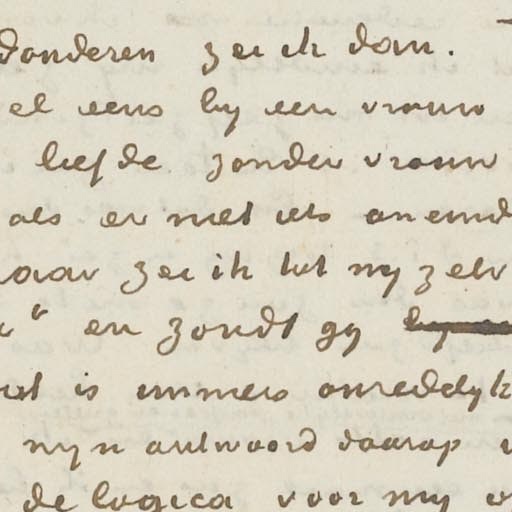 donderen zei ik dan.
el eens by een vrouw
liefde zonder vrouw
als er niet iets oneind
aar zei ik tot my zelv
en zoudt gy
is immers onredelyk
myn antwoord daarop
de logica voor my